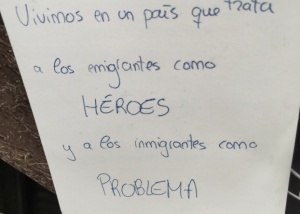 Vivimos en un país que trata
a los emigrantes como
HÉROES
y a los inmigrantes como
PROBLEMA